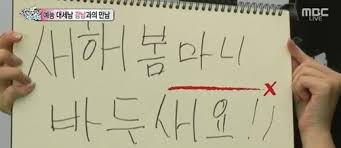 예능 대세남 강남과의 만남
MBC
LIVE
새해 봄마니
바듯새요!!
x